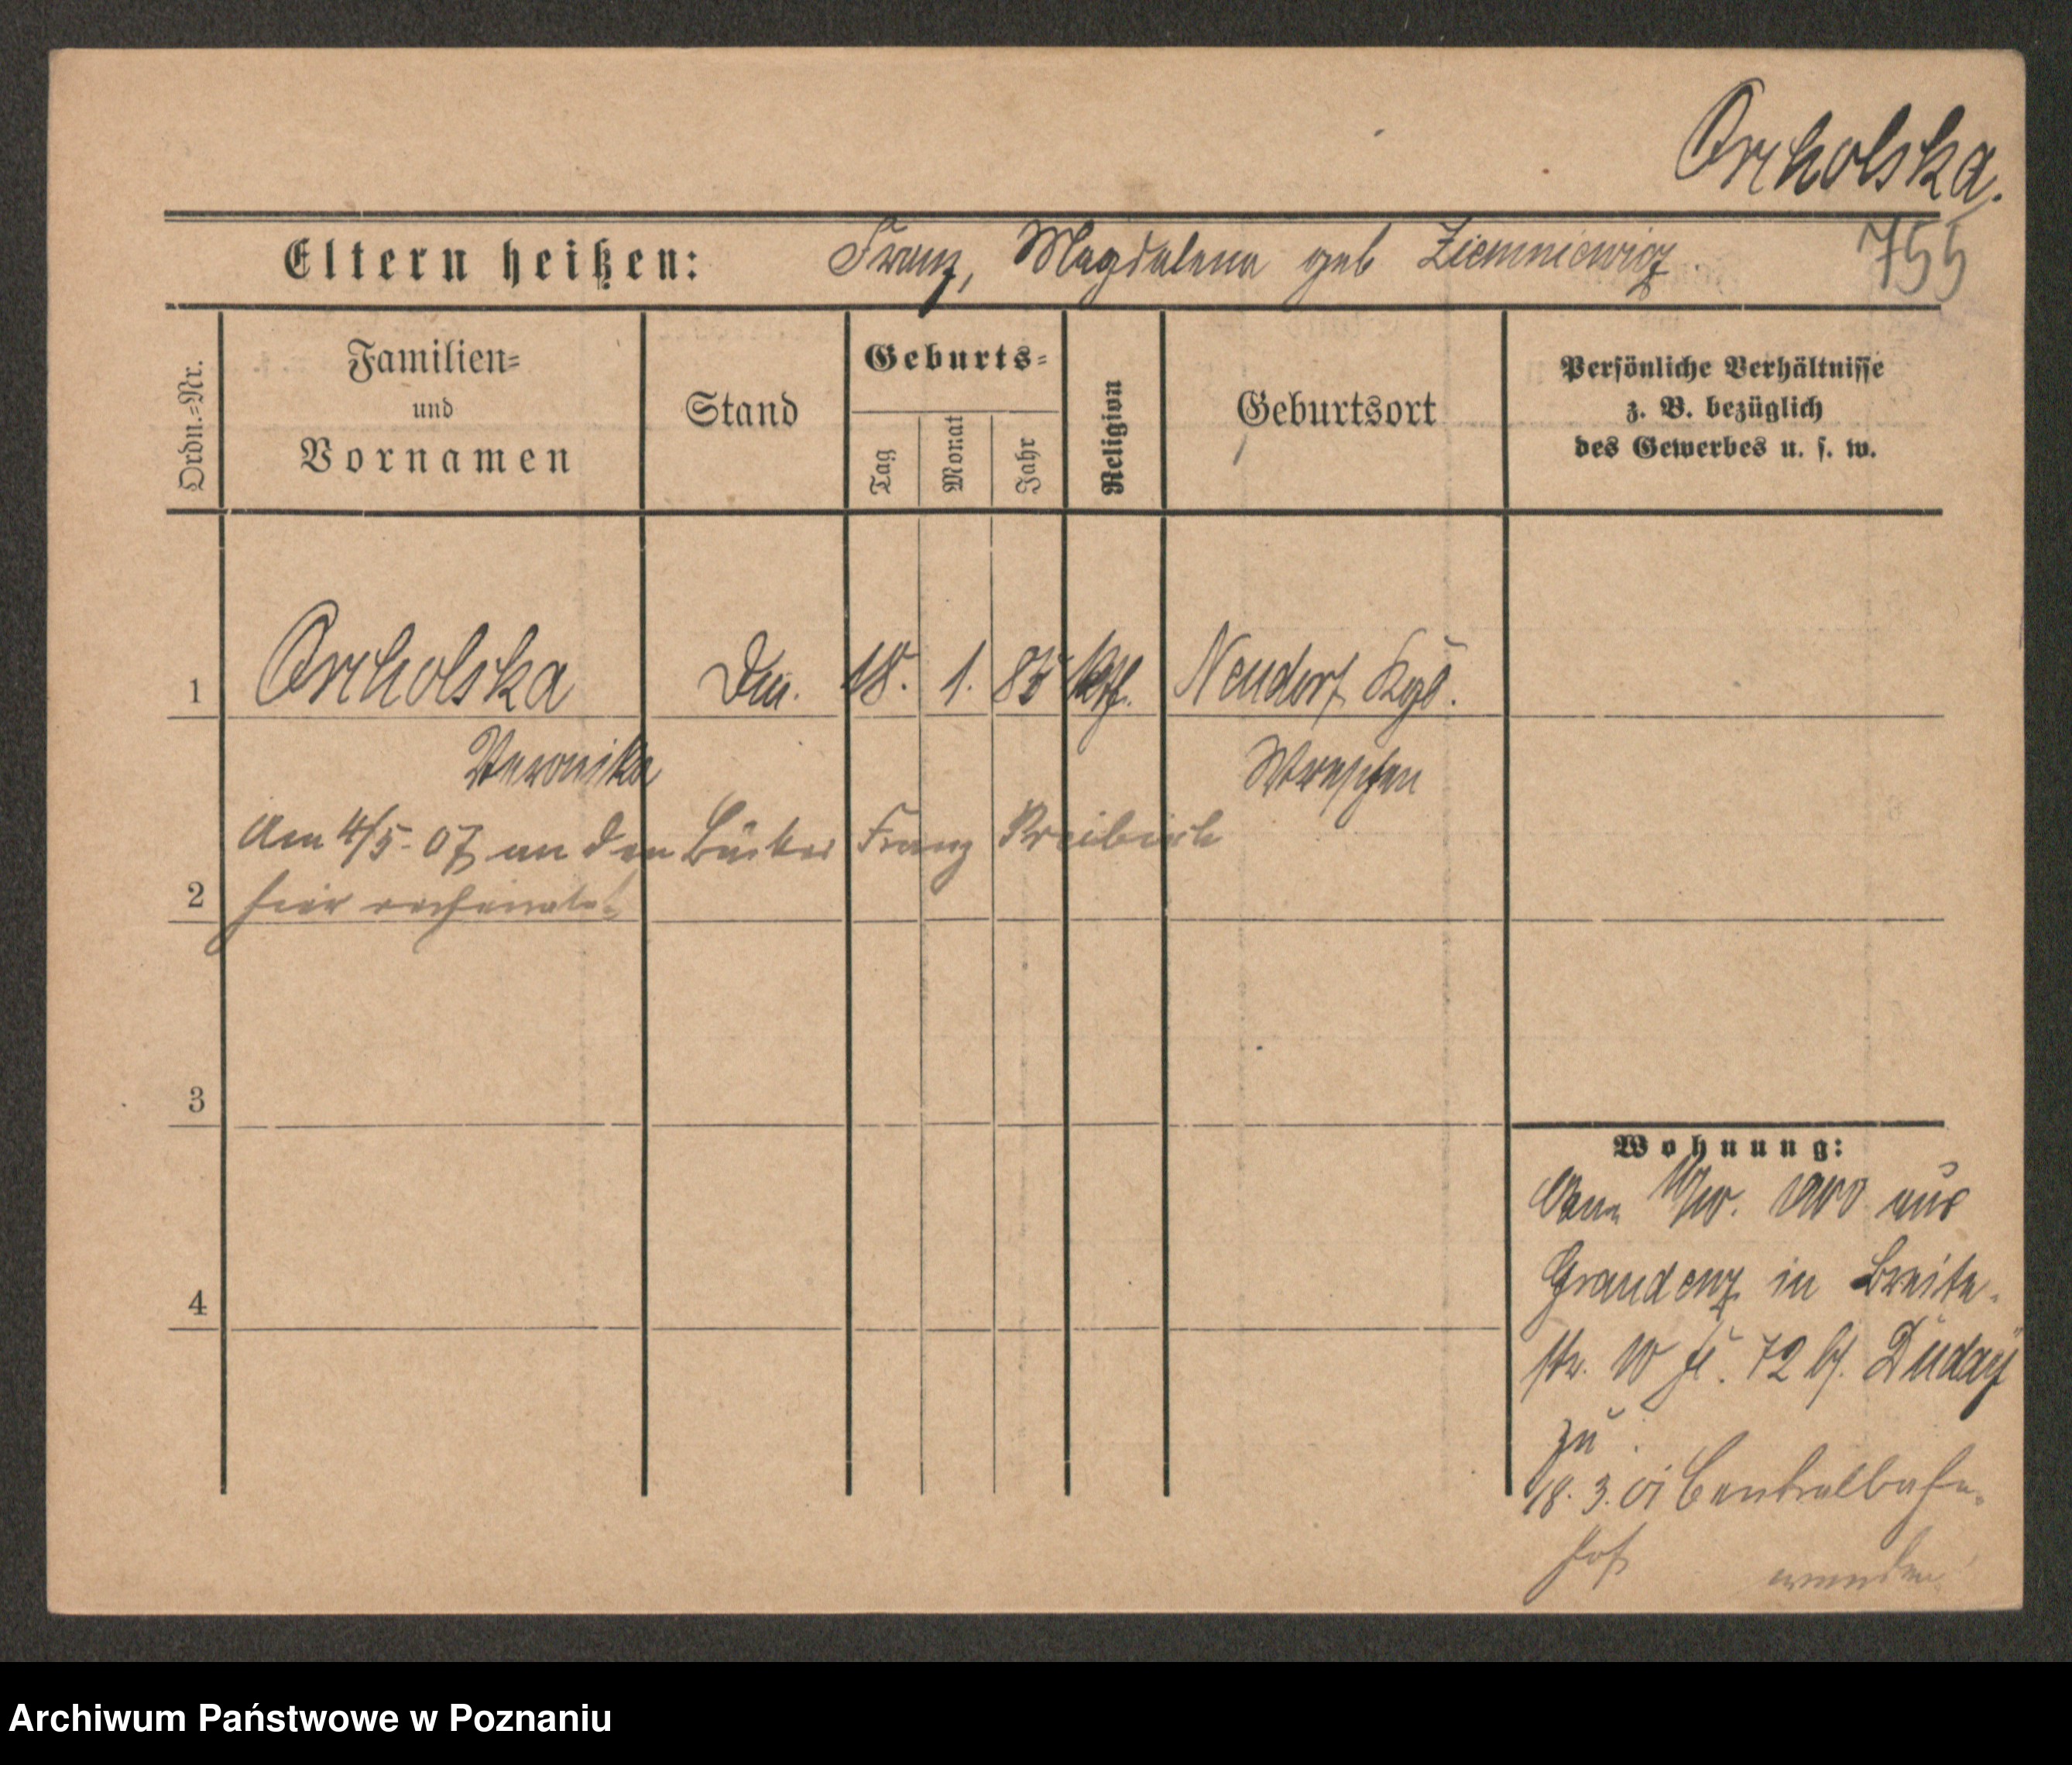 Orcholska.
755
Eltern heißen: Franz, Magdalena geb Ziemniewicz
Ordn.=Nr.
Familien=
und
Vornamen
Stand
Geburts=
Tag
Monat
Jahr
Religion
Geburtsort
Persönliche Verhältnisse
z. B. bezüglich
des Gewerbes u. s. w.
1 Orcholska 18. 1. 85 kth. Neudorf Kgl.
Veronika Wreschen
Am 4/5. 07 an den Bäcker Franz Preibisch
2 hier verheiratet
3
4
Wohnung:
aus
Graudenz in Breite-
str. 72 b/. Duday
zu
18. 3. 01 Centralbahn-
hof
wenden!
Archiwum Państwowe w Poznaniu